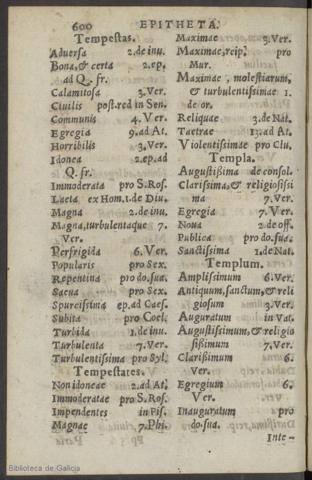 600 EPITHETA.
Tempestas.
Aduersa 2.de inu.
Bona,& certa 2.ep.
ad Q. fr.
Calamitosa 3.Ver.
Ciuilis post.red in Sen.
Communis 4.Ver.
Egregia 9.ad At.
Horribilis 3.Ver.
Idonea 2.ep.ad
Q. fr.
Immoderata pro S.Ros.
Laeta ex Hom.1.de Diu.
Magna 2.de inu.
Magna,turbulentaque 7.
Ver.
Perfrigida 6.Ver.
Popularis pro Sex.
Repentina pro do.sua.
Saeua pro Sex.
Spurcissima ep.ad Caes.
Subita pro Coel.
Turbida 1.de inu.
Turbulenta 7.Ver.
Turbulentissima pro Syl.
Tempestates.
Non idoneae 2.ad At.
Immoderatae pro S.Ros.
Impendentes in Pis.
Magnae 7.Phi.
Maximae 3.Ver.
Maximae,reip. pro
Mur.
Maximae, molestiarum,
& turbulentissimae 1.
de or.
Reliquae 3.de Nat.
Taetrae 13.ad At.
Violentissimae pro Clu.
Templa.
Augustissima de consol.
Clarissima,& religiosissi
ma 7.Ver.
Egregia 7.Ver.
Noua 2 de off.
Publica pro do.sua.
Sanctissima 1.de Nat.
Templum.
Amplissimum 6.Ver.
Antiquum,sanctum,& reli
giosum 3.Ver.
Auguratum in Vat.
Augustissimum,& religio
sissimum 7.Ver.
Clarissimum 6.
Ver.
Egregium 6.
Ver.
Inauguratum pro
do.sua.
Inte-
Biblioteca de Galicia